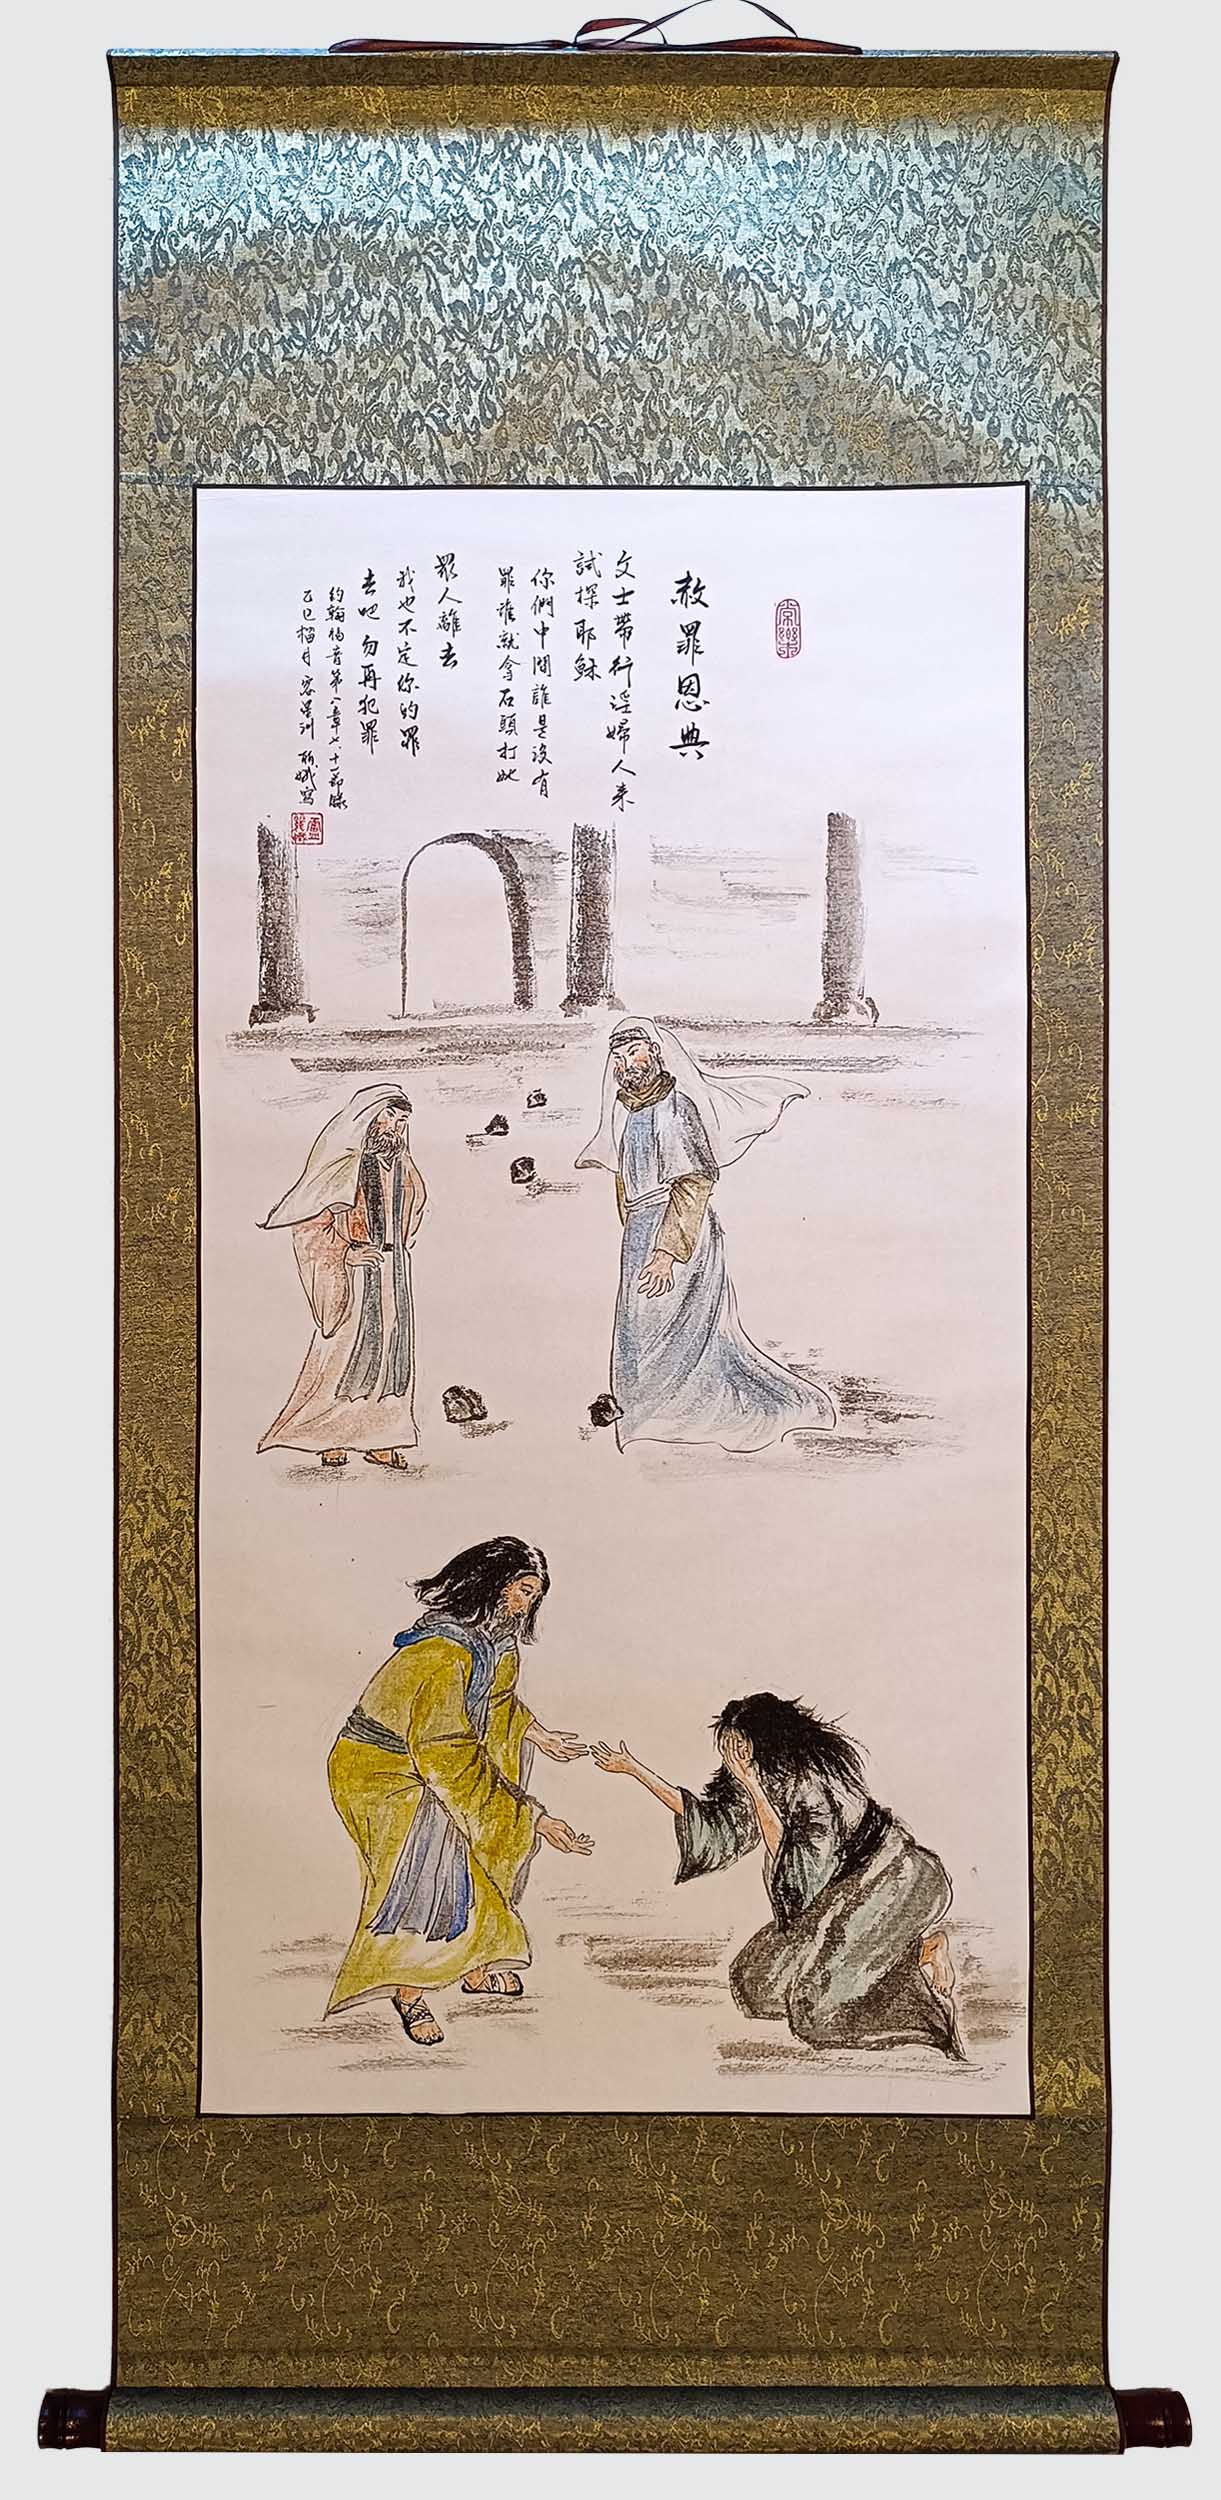 常樂
赦罪恩典
文士帶行淫婦人来
試探耶穌
你們中間誰是没有
罪誰就拿石頭打她
眾人離去
我也不定你的罪
去吧勿再犯罪
約翰福音第八章七、十一節錄
乙巳榴月客星洲 娥寫